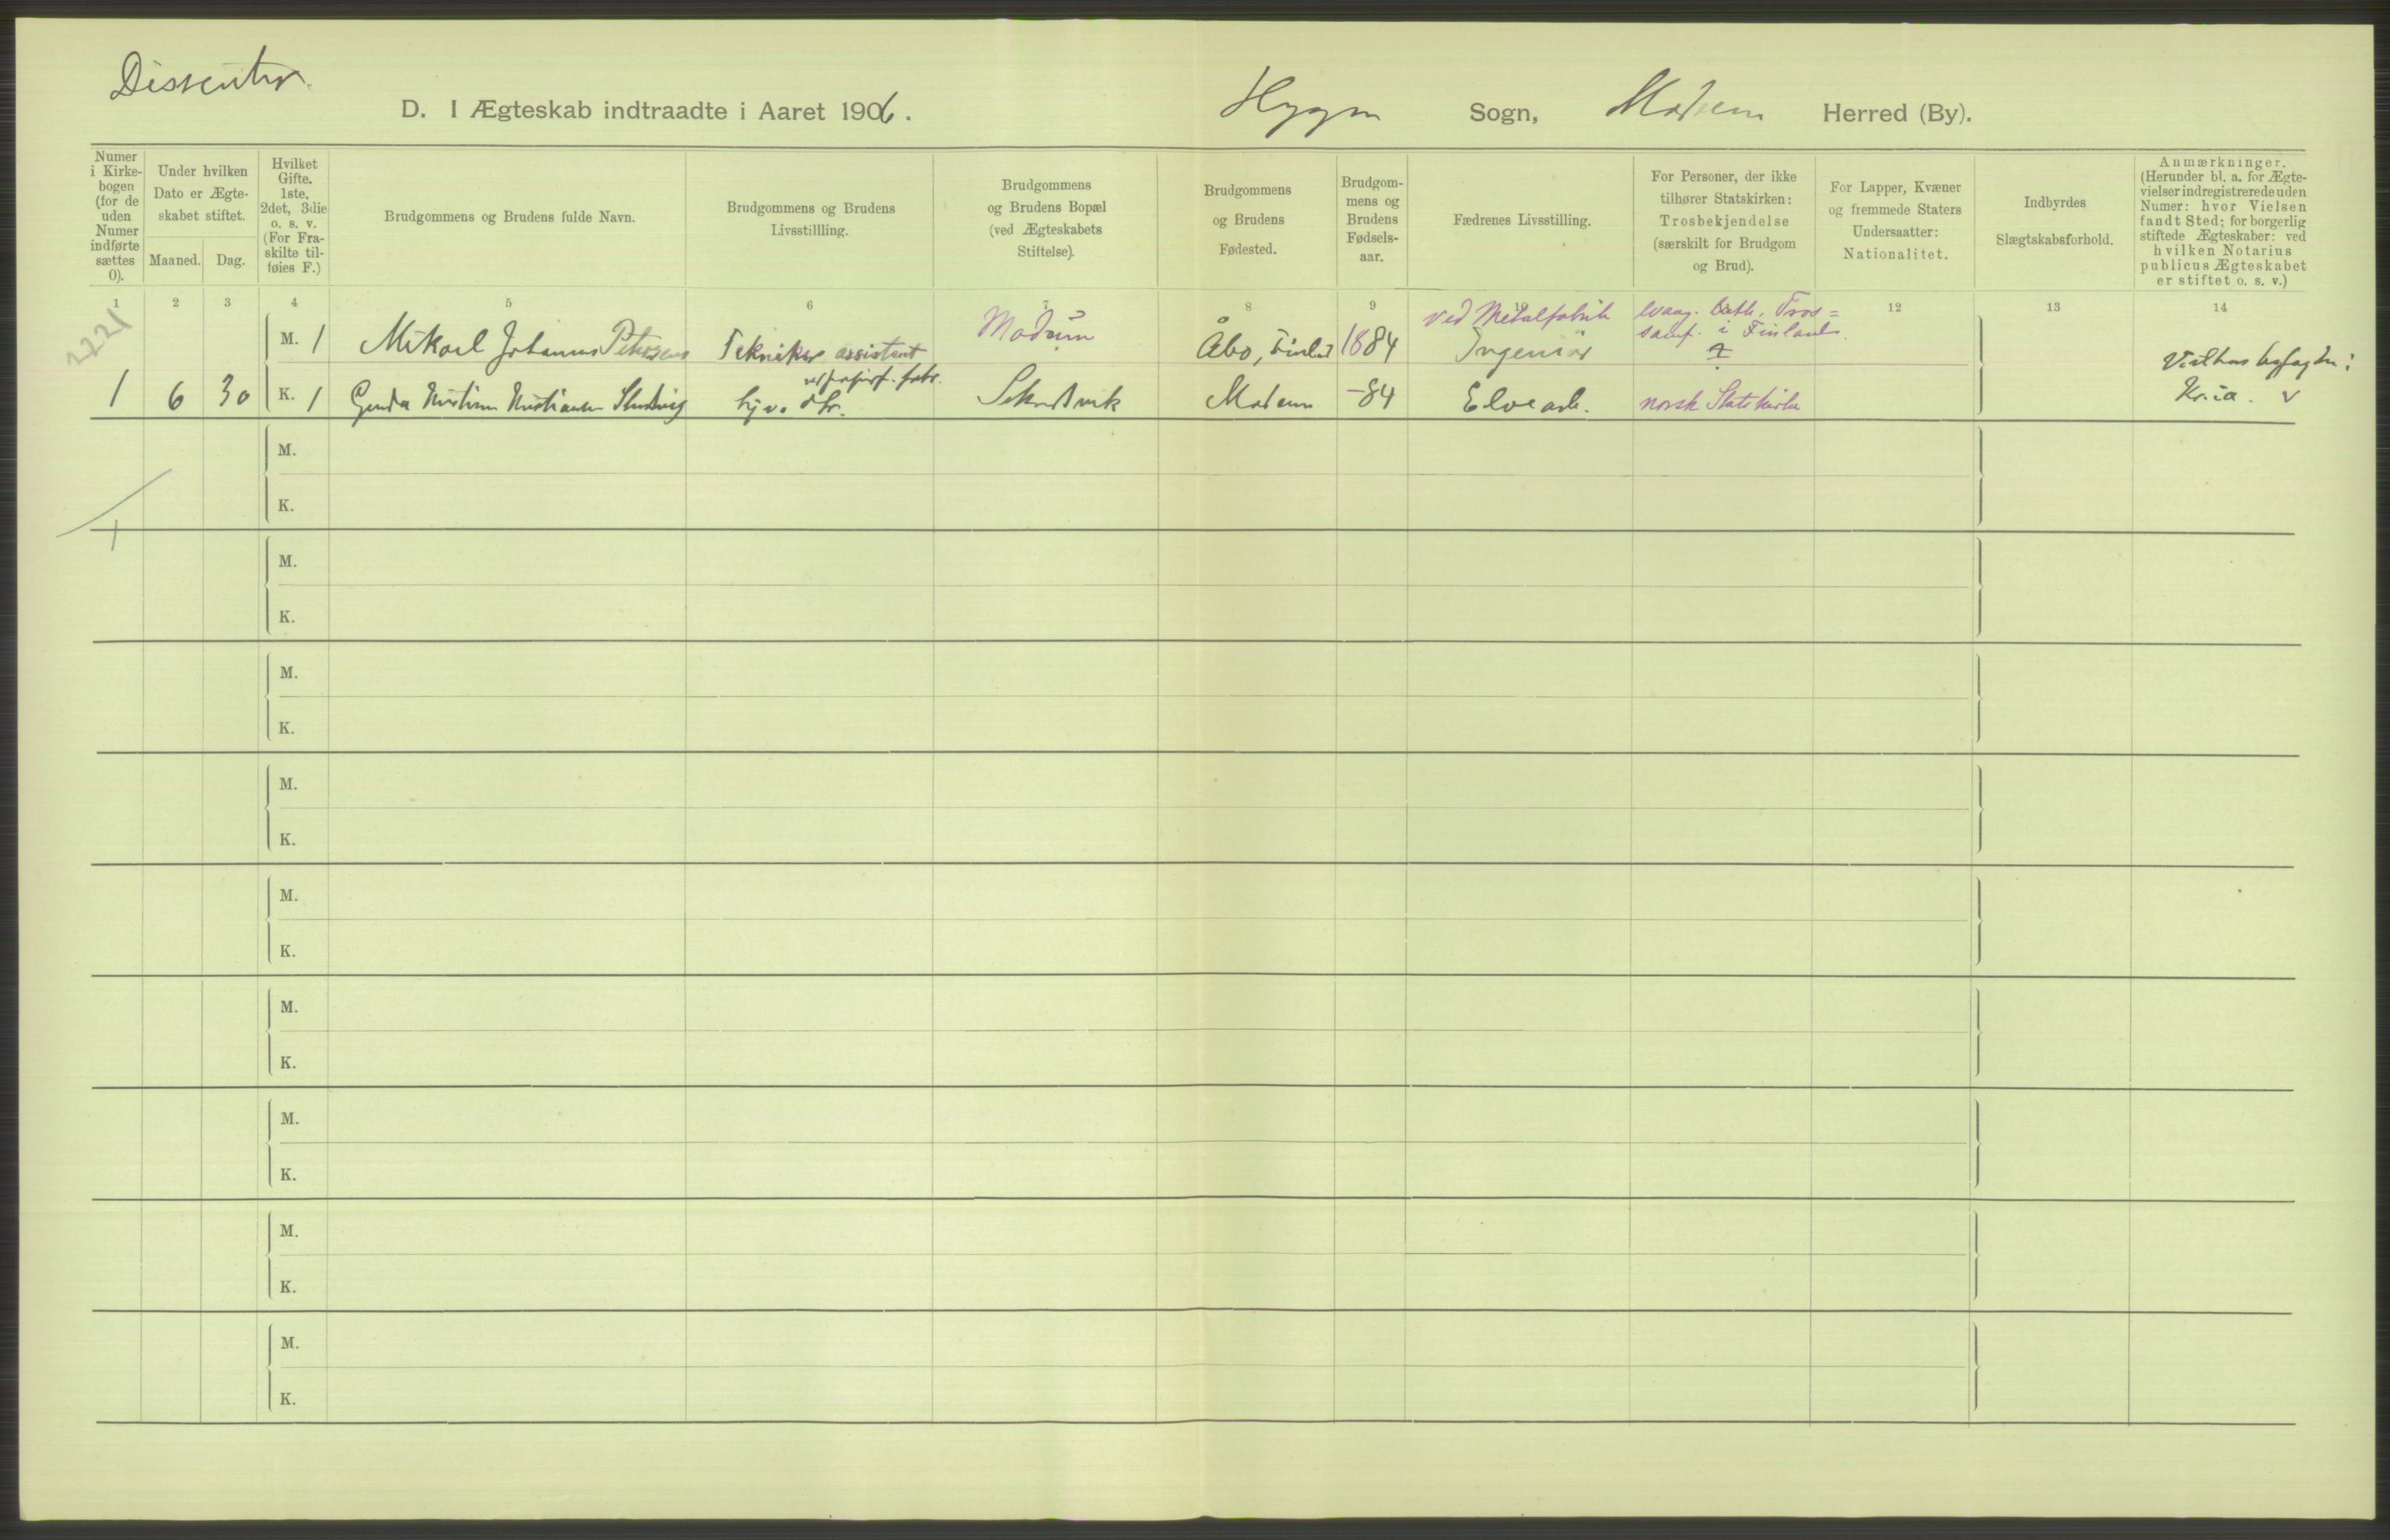 Dissenter.
D. I Ægteskab indtraadte i Aaret 1906. Hygen Sogn, Modum Herred (By).
Numer i Kirke-bogen (for de uden Numer indførte sættes 0).
Under hvilken Dato er Ægte-skabet stiftet.
Maaned. Dag.
Hvilket Gifte. 1ste, 2det, 3die o. s. v. (For Fra-skilte til-føies F.)
Brudgommens og Brudens fulde Navn.
Brudgommens og Brudens Livsstillling.
Brudgommens og Brudens Bopæl (ved Ægteskabets Stiftelse).
Brudgommens og Brudens Fødested.
Brudgom-mens og Brudens Fødsels-aar.
Fædrenes Livsstilling.
For Personer, der ikke tilhører Statskirken: Trosbekjendelse (særskilt for Brudgom og Brud).
For Lapper, Kvæner og fremmede Staters Undersaatter: Nationalitet.
Indbyrdes Slægtskabsforhold.
Anmærkninger. (Herunder bl. a. for Ægte-vielser indregistrerede uden Numer: hvor Vielsen fandt Sted; for borgerlig stiftede Ægteskaber: ved hvilken Notarius publicus Ægteskabet er stiftet o. s. v.)
1 2 3 4 5 6 7 8 9 10 12 13 14
2221
M. 1 Mikael Johannes Petersens Tekniker assistent Modum Åbo, Finland 1884 ved Metalfabrik Ingeniør evang. luth. Tros= samf. i Finland.
ved papirf. fabr.
1 6 30 K. 1 Kristiansen hj.v. dtr. Modum -84 Elvearb. norsk Statskirke
Kr.ia. v
M.
K.
1
M.
K.
M.
K.
M.
K.
M.
K.
M.
K.
M.
K.
M.
K.
M.
K.